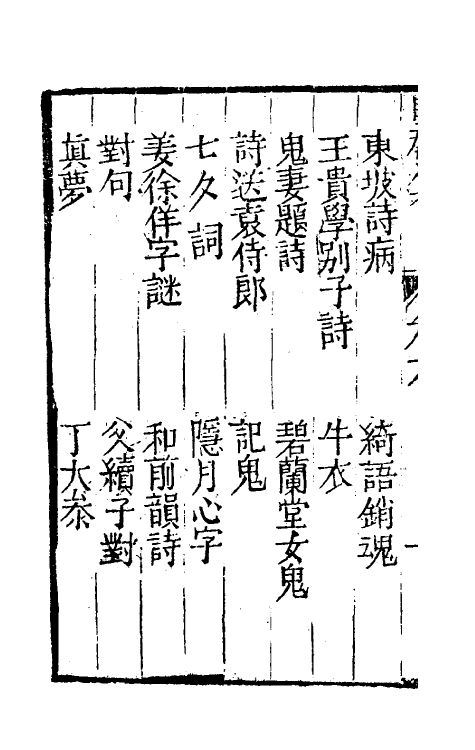 東坡詩病　綺語銷魂
王貴學别子詩　牛衣
鬼妻題詩　碧蘭堂女鬼
詩送袁侍郎　記鬼
七夕詞　隱月心字
姜徐佯字謎　和前韻詩
對句　父續子對
真夢　丁大叅